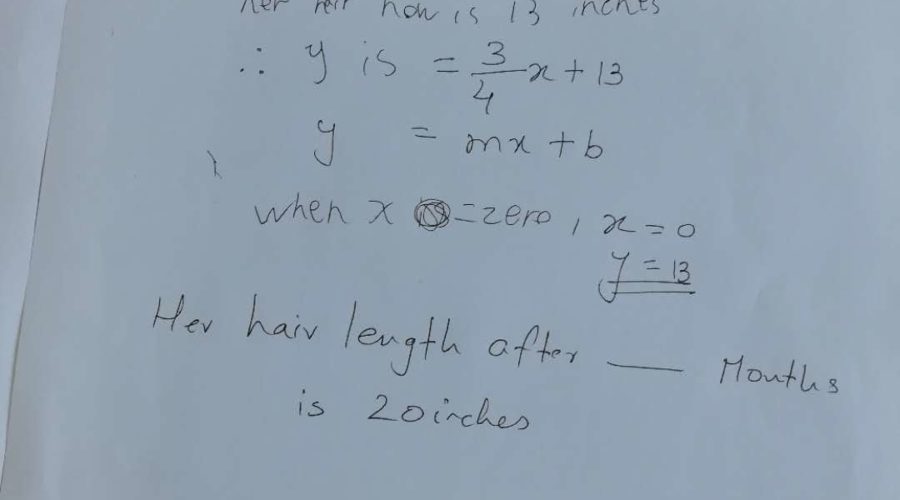 her hair now is 13 inches
∴ y is = 3/4 x + 13
y = mx + b
when x = zero, x = 0
y = 13
Her hair length after ___ Months
is 20 inches